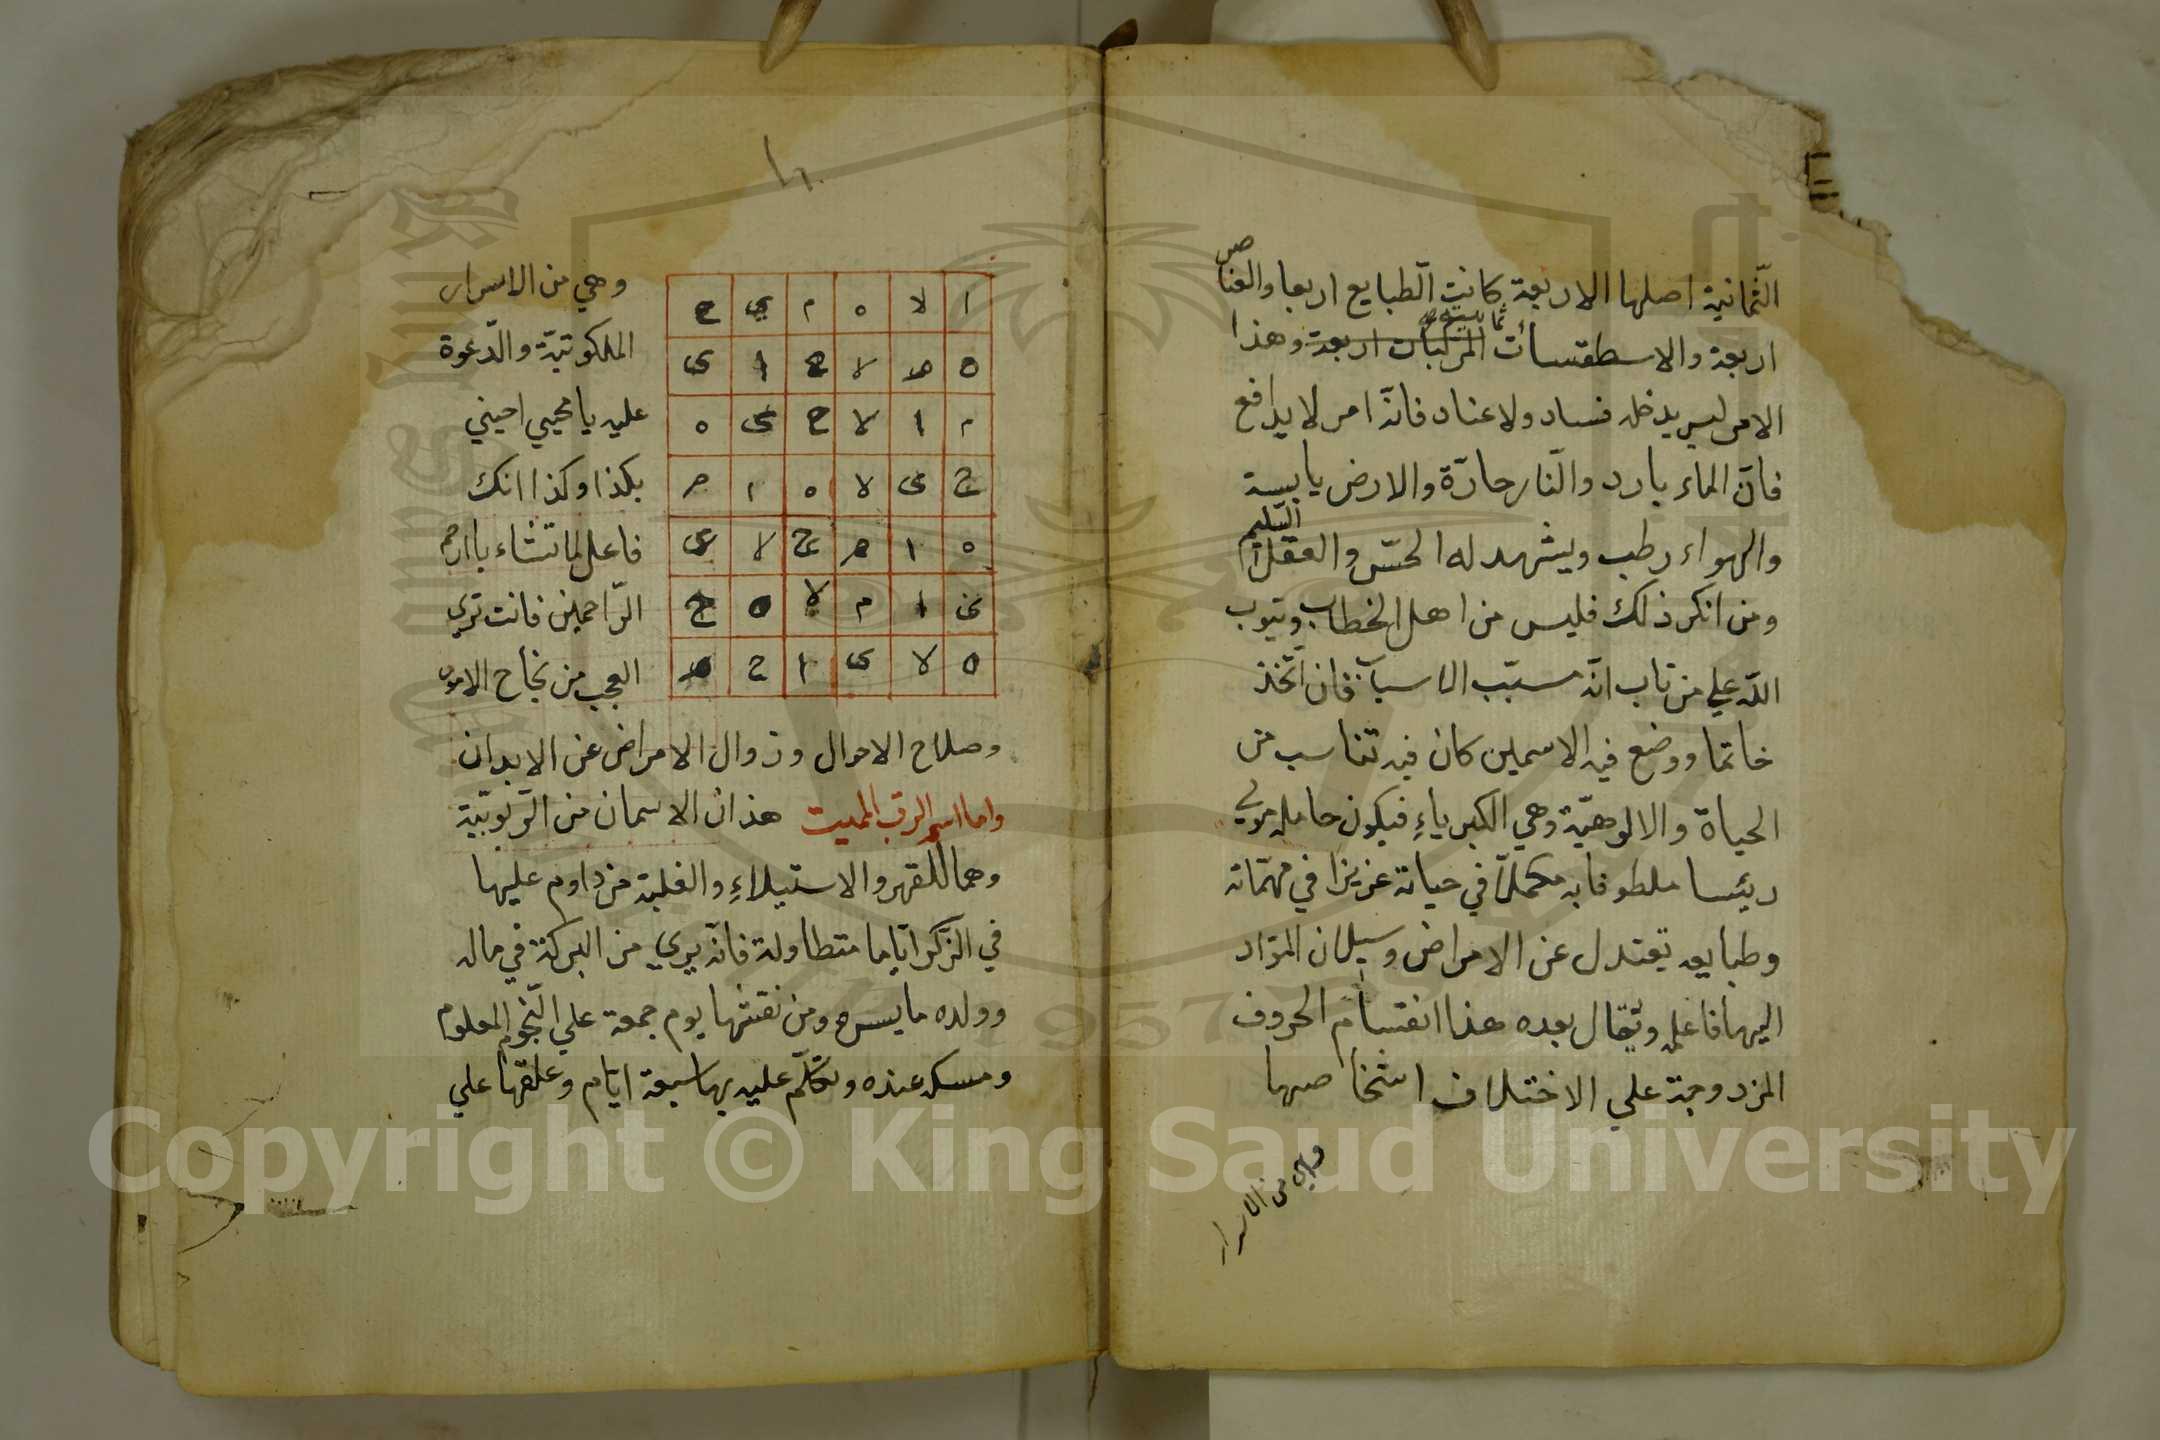 الثّمانية اصلها الاربعة كانت الّطبايع اربعا والعناصر
اربعة والاسطقسات المركبات اربعة وهذا
ثمانية
الامر ليس يدخله فساد ولا عناد فانّه امر لا يدافع
فانّ الماء بارد والنّار حارّة والارض يابسة
والهواء رطب ويشهد له الحسّ والعقل السّليم
ومن انكر ذلك فليس من اهل الخطاب ويتوب
اللّه علي من تاب انّه مسبّب الاسباب فان اتّخذ
خاتما ووضع فيه الاسمين كان فيه تناسب من
الحياة والالوهيّة وهي الكبرياءِ فيكون حامله
رئيسا ملطوفا به مكملاّ في حياته عزيزا في مهمّاته
وطبايعه تعتدل عن الامراض وسيلان الموّاد
اليها فاعلم ويقال بعده هذا انقسام الحروف
المزدوجة علي الاختلاف اشخاصها
وهي من الاسرار
ا لا ه م ي ح
ه م لا ح ا ى
م ا لا ح ى ه
ح ى لا ه ا م
ه ا م ح لا ى
ى ا م لا ه ح
ه لا ى ا ح م
وهي من الاسرار
الملكوتيّة والدّعوة
عليه يا محيي احيني
بكذا وكذا انك
فاعل لما تشاء يا ارحم
الرّاحمين فانت تري
العجب من نجاح الامور
وصلاح الاحوال وزوال الامراض عن الابدان
واما اسم الرب المميت هذان الاسمان من الرّبوبيّة
وهما للقهر والاستيلاءِ والغلبة من داوم عليها
في الذّكر ايّاما متطاولة فانّه يري من البركة في ماله
وولده ما يسره ومن نقشها يوم جمعة علي النّجوم المعلوم
ومسكه عنده وتكلّم عليه بها سبعة ايّام وعلقها علي
Copyright © King Saud University
1957